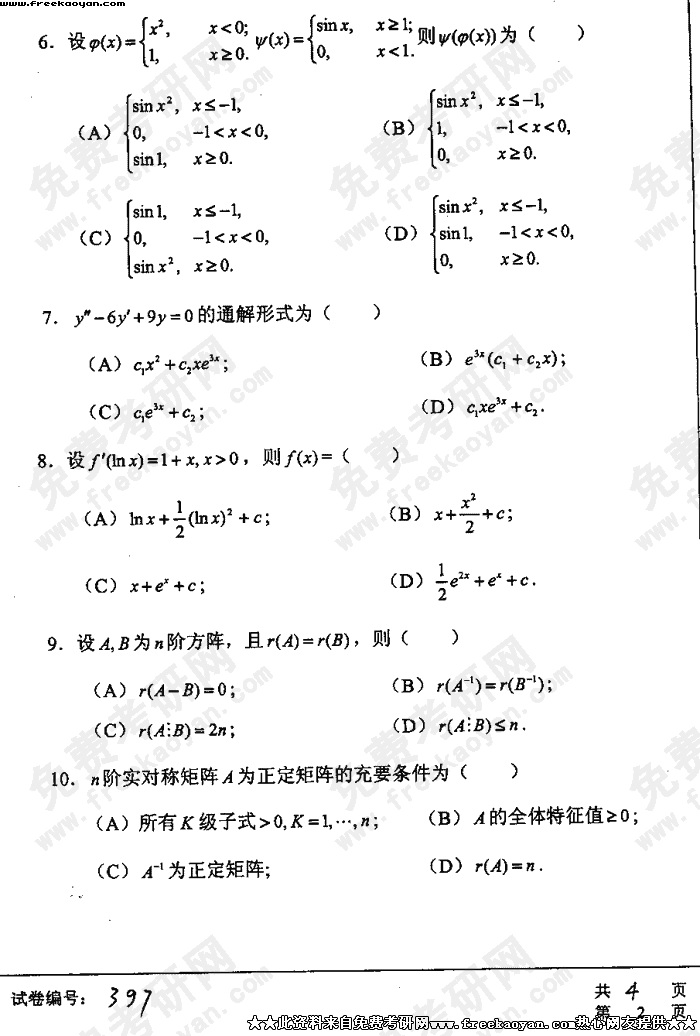 www.freekaoyan.com
6. 设φ(x)={x², x<0; 1, x≥0. ψ(x)={sin x, x≥1; 0, x<1. 则ψ(φ(x))为（ ）
（A）{sin x², x≤-1, 0, -1<x<0, sin1, x≥0. （B）{sin x², x≤-1, 1, -1<x<0, 0, x≥0.
（C）{sin1, x≤-1, 0, -1<x<0, sin x², x≥0. （D）{sin x², x≤-1, sin1, -1<x<0, 0, x≥0.
7. y″-6y′+9y=0的通解形式为（ ）
（A）c₁x²+c₂xe³ˣ; （B）e³ˣ(c₁+c₂x);
（C）c₁e³ˣ+c₂; （D）c₁xe³ˣ+c₂.
8. 设f′(ln x)=1+x, x>0，则f(x)=（ ）
（A）ln x+1/2(ln x)²+c; （B）x+x²/2+c;
（C）x+eˣ+c; （D）1/2e²ˣ+eˣ+c.
9. 设A,B为n阶方阵，且r(A)=r(B)，则（ ）
（A）r(A-B)=0; （B）r(A⁻¹)=r(B⁻¹);
（C）r(A⋮B)=2n; （D）r(A⋮B)≤n.
10. n阶实对称矩阵A为正定矩阵的充要条件为（ ）
（A）所有K级子式>0,K=1,⋯,n; （B）A的全体特征值≥0;
（C）A⁻¹为正定矩阵; （D）r(A)=n.
试卷编号：397 共 4 页
第 2 页
★★此资料来自免费考研网www.freekaoyan.com热心网友提供★★
免费考研网
www.freekaoyan.com